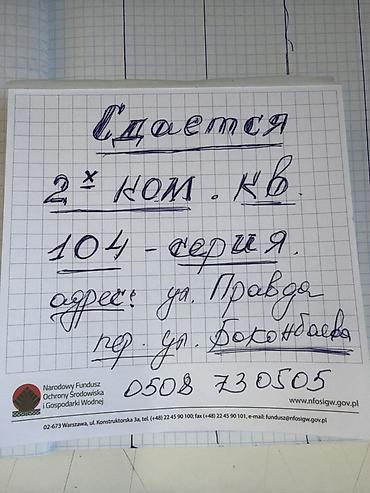 Сдается
2х ком. кв.
104 - серия.
адрес: ул. Правда
пер. ул. Боконбаева
0508 730505
Narodowy Fundusz
Ochrony Środowiska
i Gospodarki Wodnej
www.nfosigw.gov.pl
02-673 Warszawa, ul. Konstruktorska 3a, tel. (+48) 22 45 90 100; fax (+48) 22 45 90 101, e-mail: fundusz@nfosigw.gov.pl